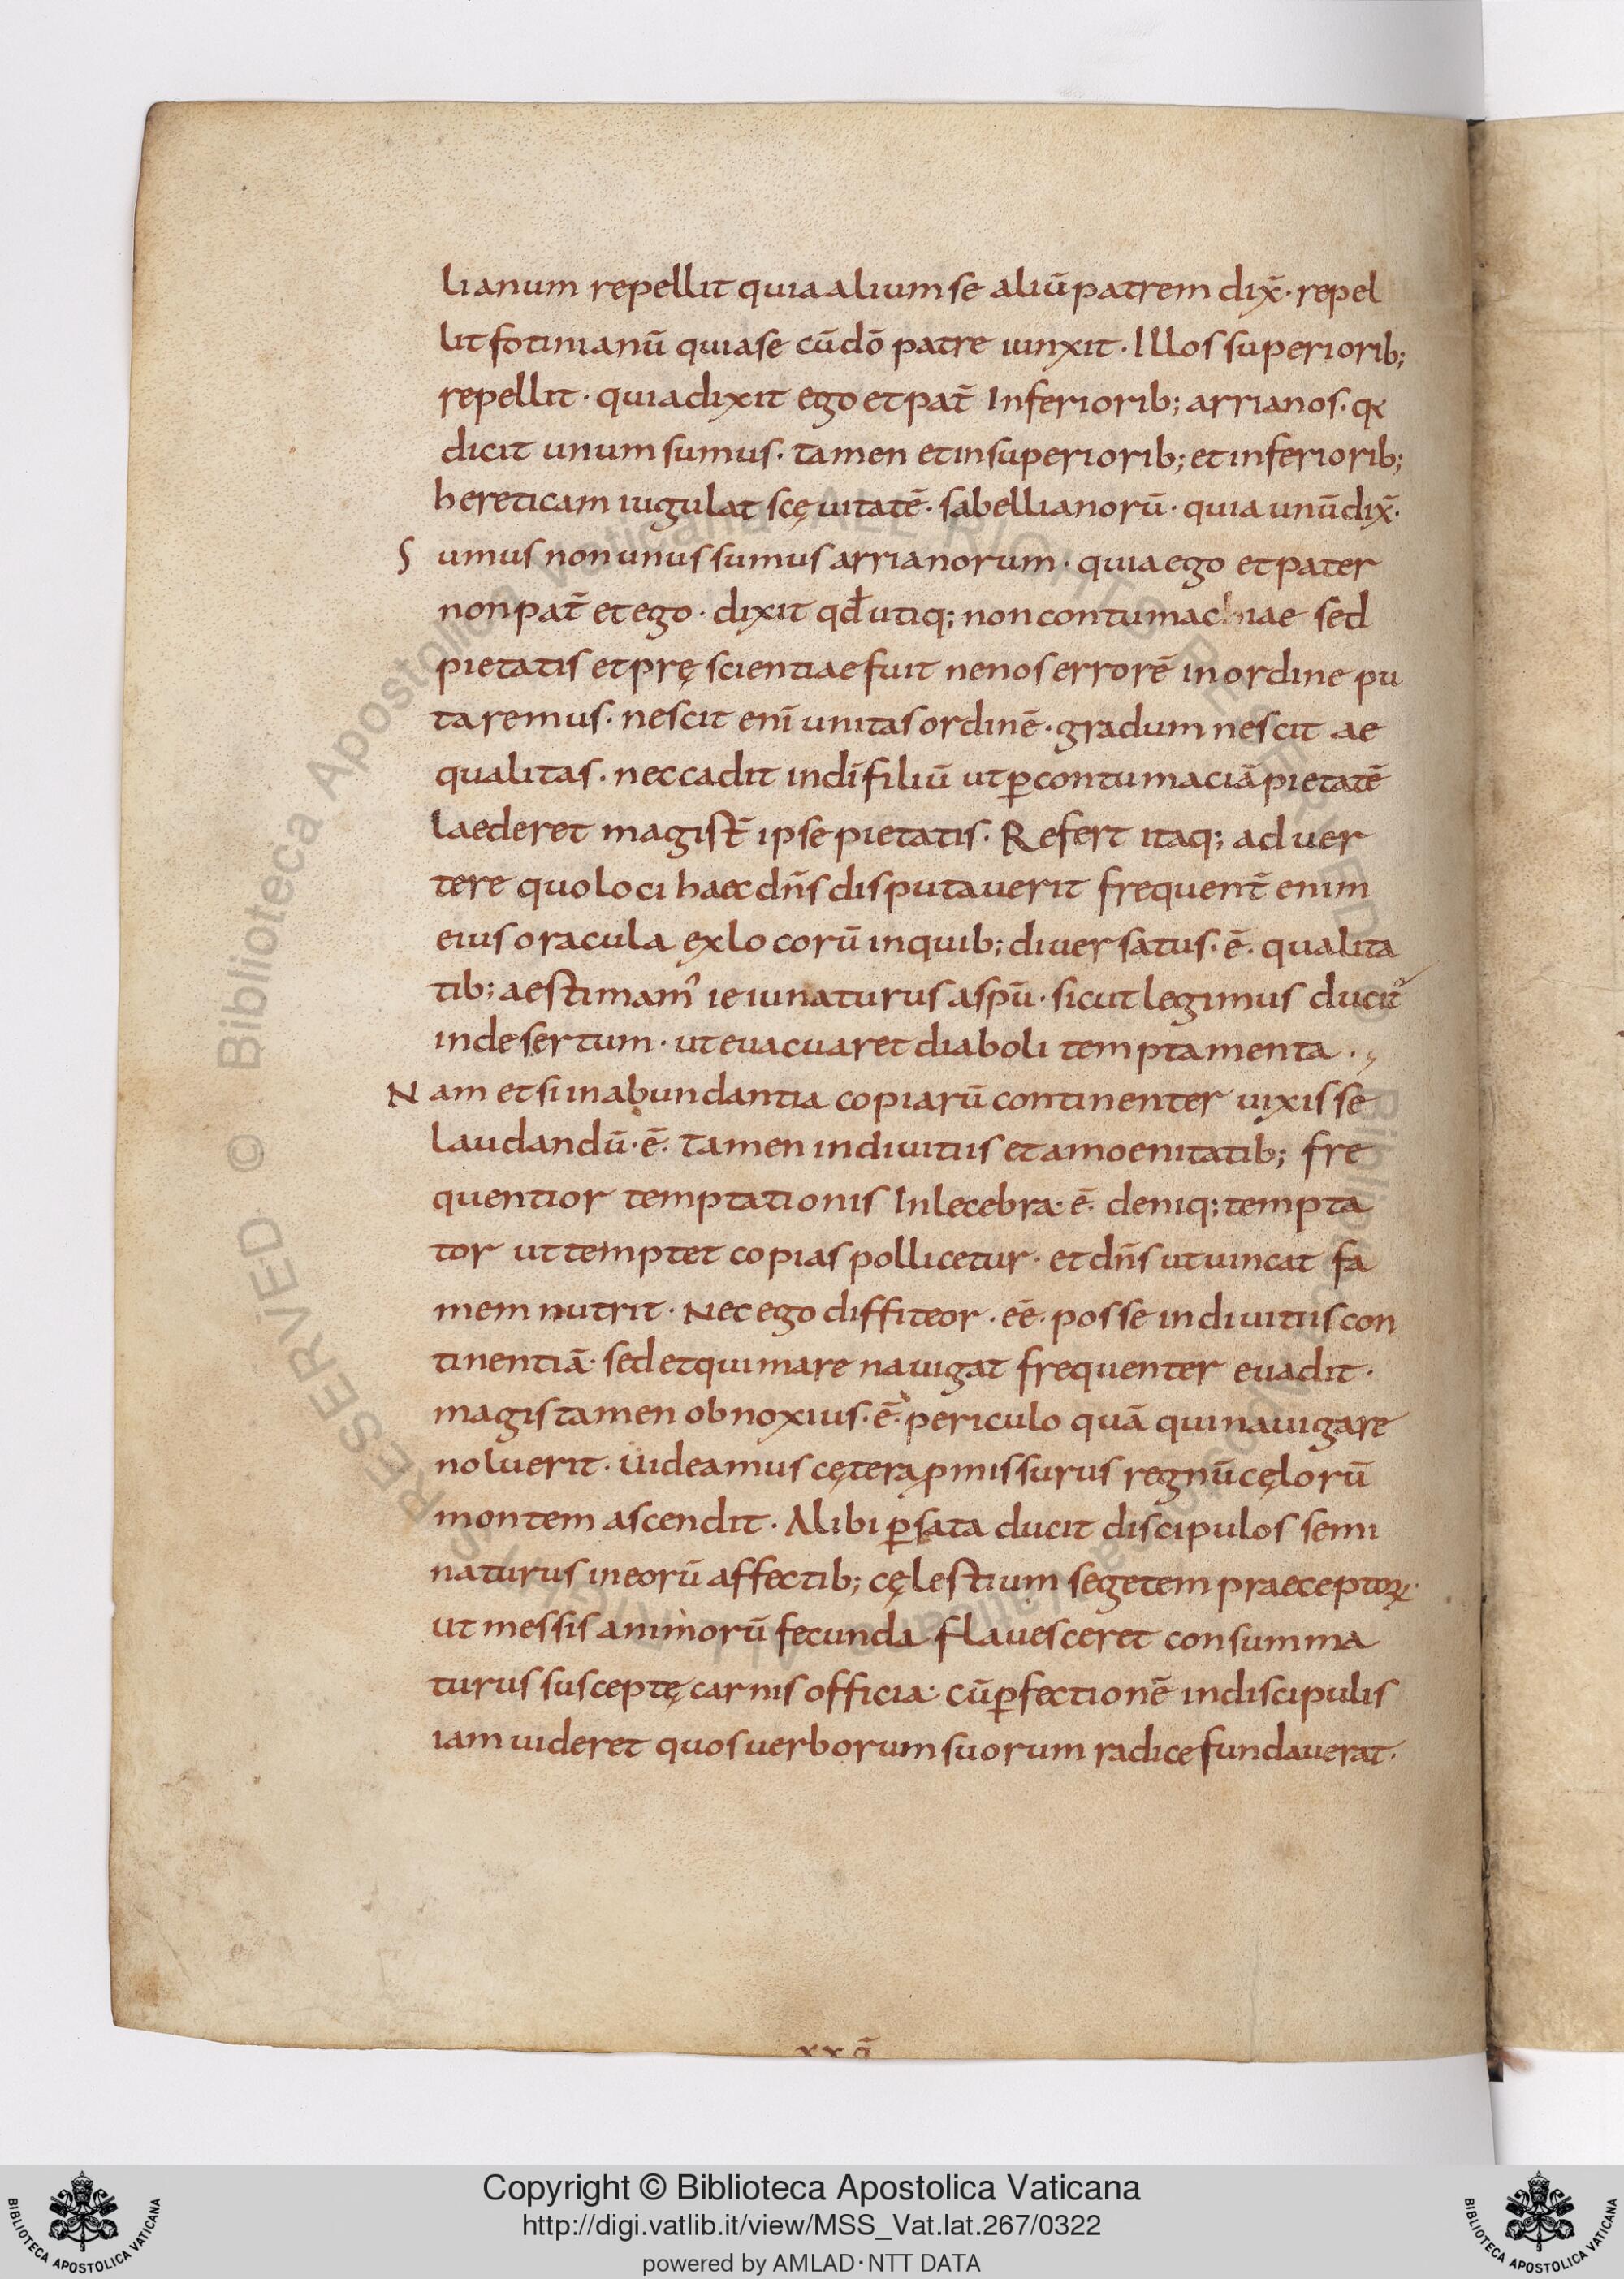 lianum repellit quia alium se aliū patrem dix̄· repel
lit fotinianū quia se cū dō patre iunxit· Illos superiorib;
repellit· quia dixit ego et pat̄ Inferiorib; arrianos· q̨
dicit unum sumus· tamen et in superiorib; et inferiorib;
hereticam iugulat scęuitatē· sabellianorū· quia unū dix̄·
Sumus non unus sumus arrianorum· quia ego et pater
non pat̄ et ego· dixit qđ utiq; non contumac iae sed
pietatis et pręscientiae fuit ne nos errorē in ordine pu
taremus· nescit enī unitas ordinē· gradum nescit ae
qualitas· nec cadit in dī filiū ut ꝑ contumaciā pietatē
laederet magist̄ ipse pietatis· Refert itaq; aduer
tere quo loci haec dn̄s disputauerit frequent̄ enim
eius oracula ex locorū in quib; diuersatus· ē· qualita
tib; aestimam᷒ ieiunaturus a sp̄u· sicut legimus ducit᷒
in desertum· ut euacuaret diaboli temptamenta·,
Nam et si in abundantia copiarū continenter uixisse
laudandū· ē· Tamen in diuitiis et amoenitatib; fre
quentior temptationis Inlecebra· ē· deniq; tempta
tor ut temptet copias pollicetur· et dn̄s ut uincat fa
mem nutrit· Nec ego diffiteor· eē· posse in diuitiis con
tinentiā· sed et qui mare nauigat frequenter euadit·
magis tamen obnoxius· ē· periculo quā qui nauigare
noluerit· Uideamus cętera ꝓmissurus regnū cęlorū
montem ascendit· Alibi ꝑ sata ducit discipulos semi
naturus in eorū affectib; cęlestium segetem praeceptoꝝ·
ut messis animorū fecunda flauesceret consumma
turus susceptę carnis officia· cū ꝑfectionē in discipulis
iam uideret quos uerborum suorum radice fundauerat·
Copyright © Biblioteca Apostolica Vaticana
http://digi.vatlib.it/view/MSS_Vat.lat.267/0322
powered by AMLAD·NTT DATA
BIBLIOTECA APOSTOLICA VATICANA
BIBLIOTECA APOSTOLICA VATICANA